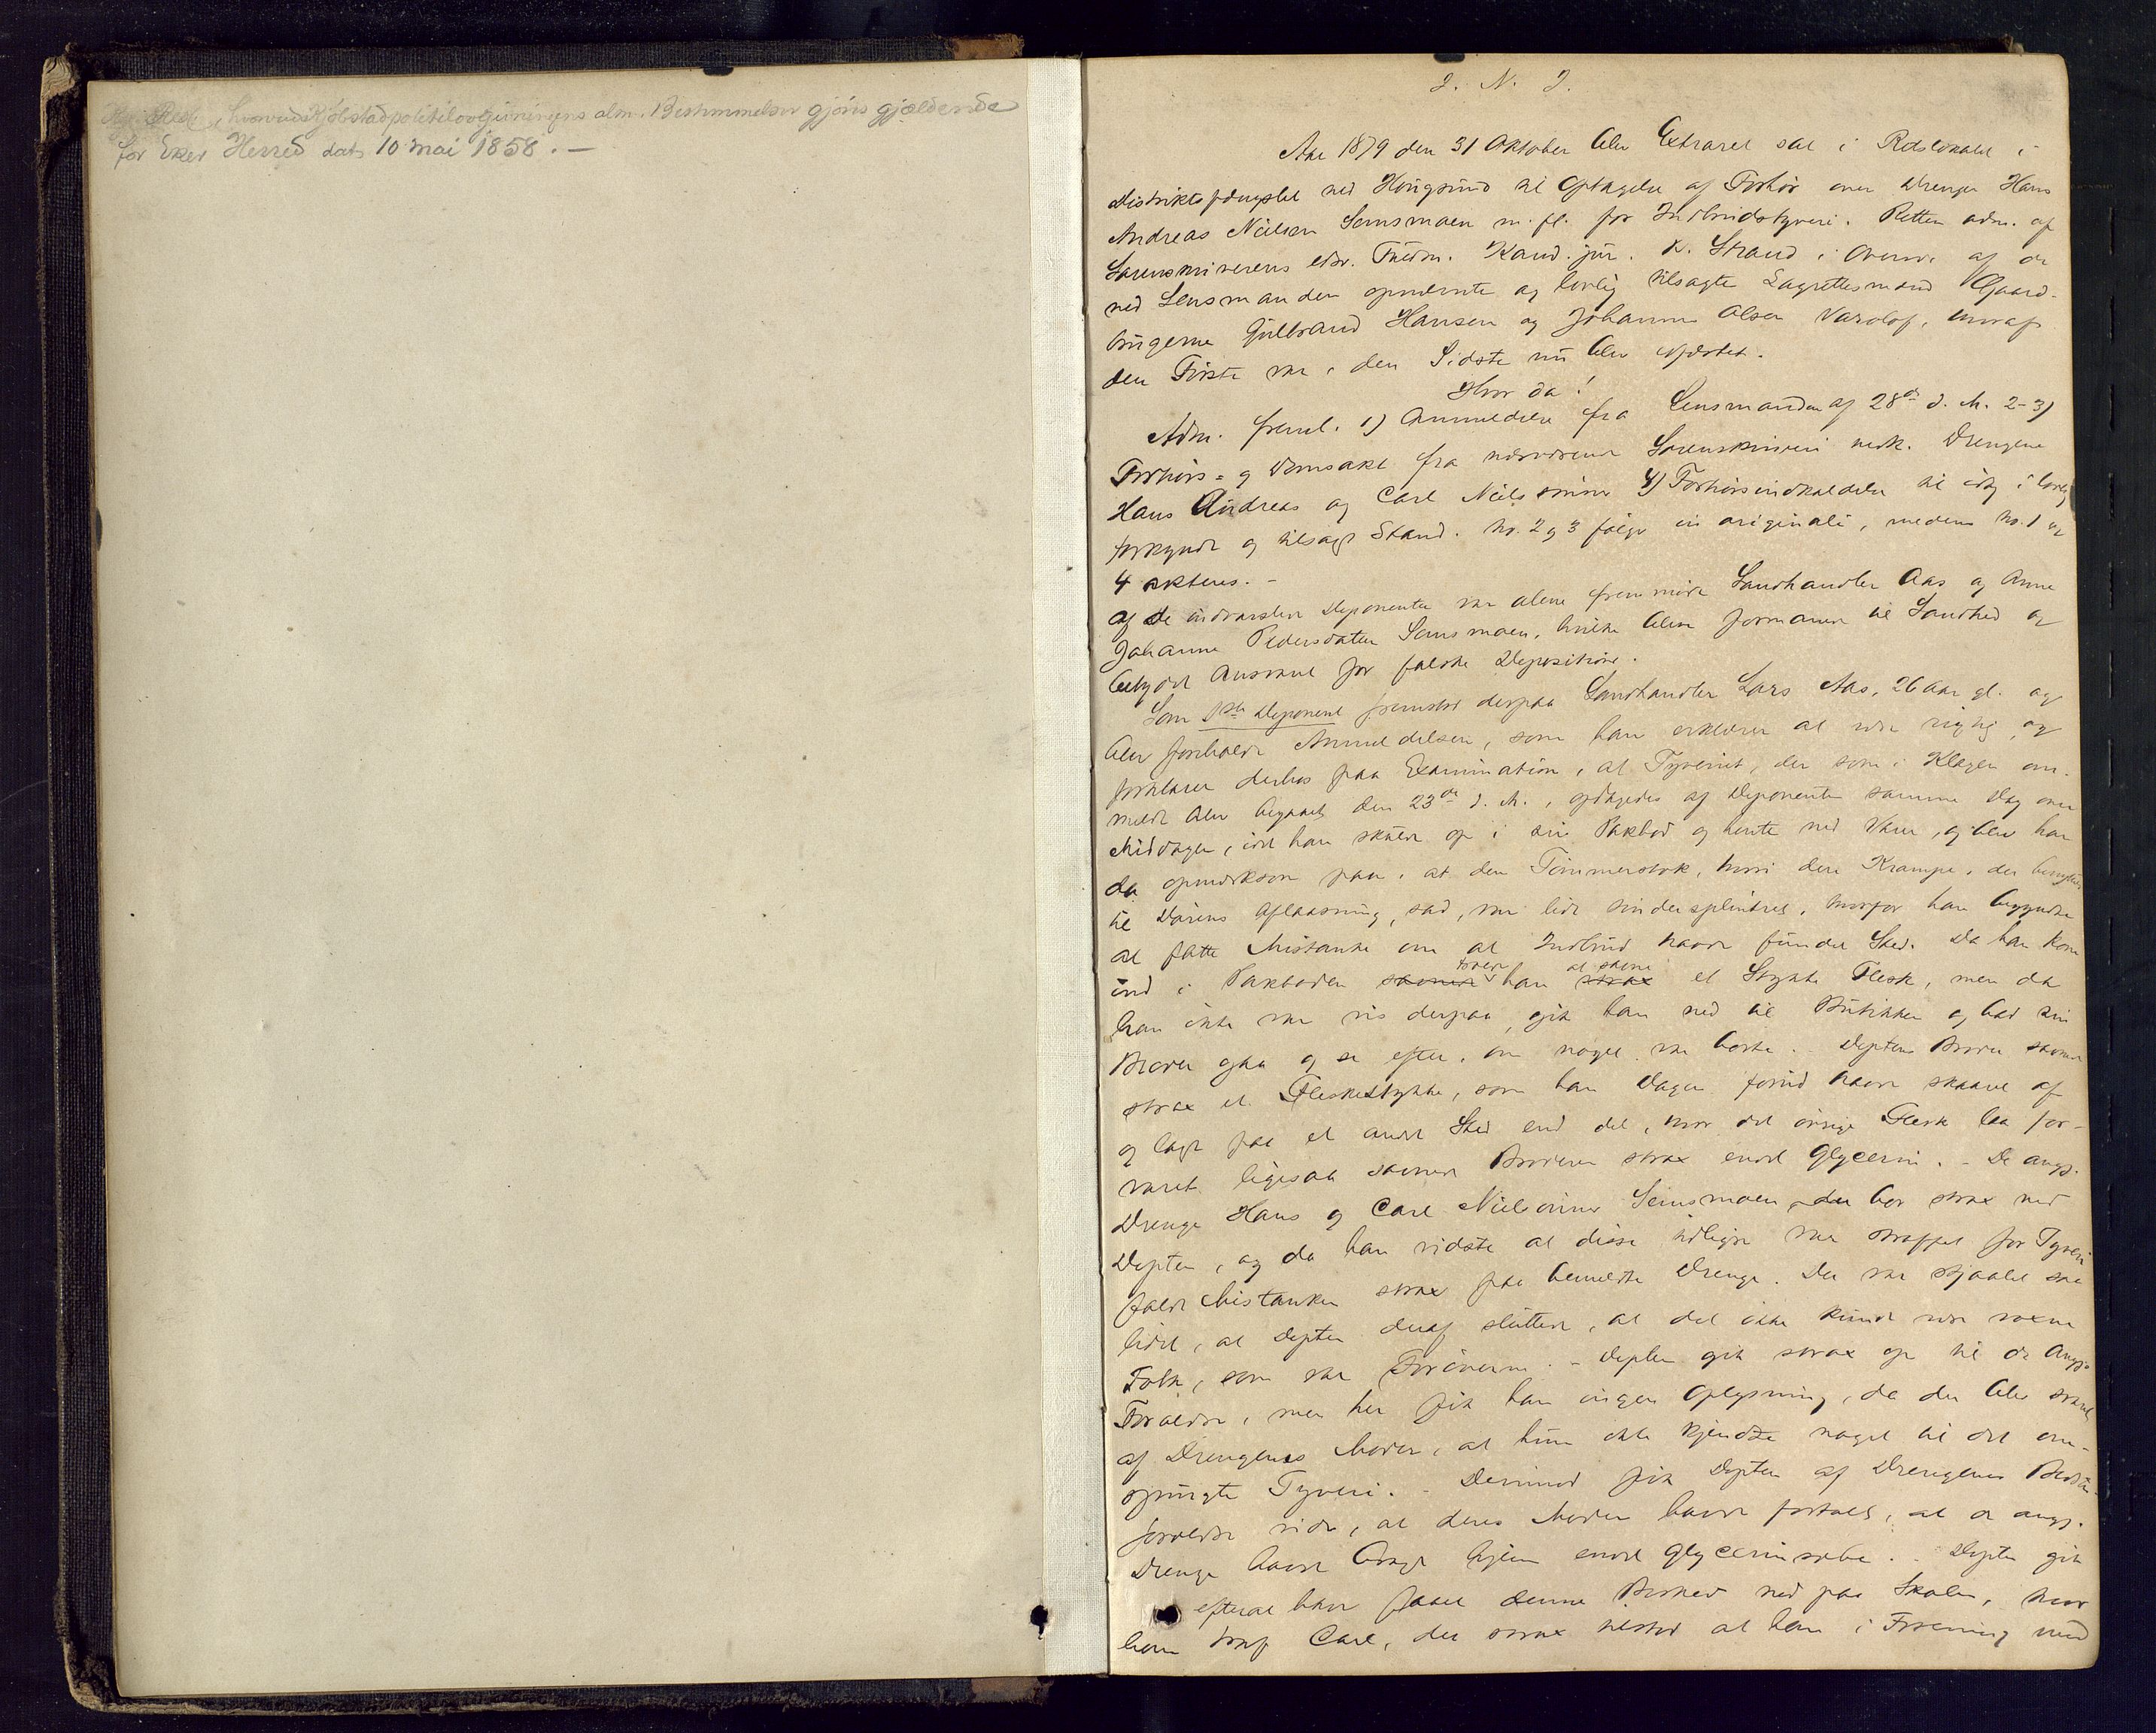 Kgl. Resl., hvorved Kjöbstadpolitilovgivningens alm. Bestemmelser gjöres gjældende
for Eker Herred dat. 10 mai 1858. —
J. N. J.
Aar 1879 den 31 Oktober blev Extraret sat i Retslokalet i
Distriktsfængslet ved Hougsund til Optagelse af Forhör over Drengen Hans
Andreas Nielsen Semsmoen m. fl. for Indbrudstyveri. Retten adm. af
Sorenskriverens edsv. Fuldm. Kand. jur. K. Strand i Overvær af de
ved Lensmanden opnævnte og lovlig tilsagte Lagrettesmænd Gaard-
brugerne Gulbrand Hansen og Johannes Olsen Varlo, hvoraf
den Förste var, den Sidste nu blev edfæstet.
Hvor da!
Adm. freml. 1) Anmeldelse fra Lensmanden af 28de d. M. 2-3)
Forhörs- og Domsakt fra nærværende Sorenskriveri vedk. Drengene
Hans Andreas og Carl Nielssönner 4) Forhörsindkaldelse til idag i lovlig
forkyndt og tilsagt Stand. No. 2 og 3 fölger in originali, medens No. 1 og
4 akteres. -
Af de indvarslede Deponenter var alene fremmödt Landhandler Aas og Anne
Johanne Pedersdatter Semsmoen, hvilke bleve formanede til Sandhed og
betydet Ansvaret for falske Depositioner.
Som 1ste Deponent fremstod derpaa Landhandler Lars Aas, 26 Aar gl. og
blev foreholdt Anmeldelsen, som han erklærer at være rigtig, og
forklarer derhos paa Examination, at Tyveriet, der som i Klagen om-
meldt blev begaaet den 23de d. M., opdagedes af Deponenten samme Dag over
Middagen, idet han skulde op i sin Pakbod og hente ned Varer, og blev han
da opmærksom paa, at den Tömmerstok, hvori den Krampe, der benyttedes
til Dörens Aflaasning, sad, var lidt sindersplintret, hvorfor han begyndte
at fatte Mistanke om at Indbrud havde fundet Sted. Da han kom
ind i Pakboden savnede troede han strax at savne et Stykke Flesk, men da
han ikke var vis derpaa, gik han ned til Butikken og bad sin
Broder gaa og se efter, om noget var borte. Deptens Broder savnede
strax et Fleskestykke, som han Dagen forud havde skaaret af
og lagt paa et andet Sted end det, hvor det övrige Flesk laa for-
varet, ligesaa savnede Broderen strax endel Glycerin. - De angj.
Drenge Hans og Carl Nielsönner Semsmoen, der bor strax ved
Depten, og da han vidste at disse tidligere var straffet for Tyveri
faldt Mistanken strax paa bemeldte Drenge. Der var stjaalet saa
lidet, at Depten deraf sluttede, at det ikke kunde være voxne
Folk, som var Forövere. - Depten gik strax op til de Angjs
Forældre, men her fik han ingen Oplysning, da der blev svaret
af Drengenes Moder, at hun ikke kjendte noget til det om-
spurgte Tyveri. - Derimod fik Depten af Drengenes Bedste-
forældre vide, at deres Moder havde fortalt, at de angj.
Drenge havde bragt hjem endel Glycerinsæbe. - Depten gik
efterat have faaet denne Besked ned paa Skolen, hvor
han traf Carl, der strax tilstod at han i Forening med